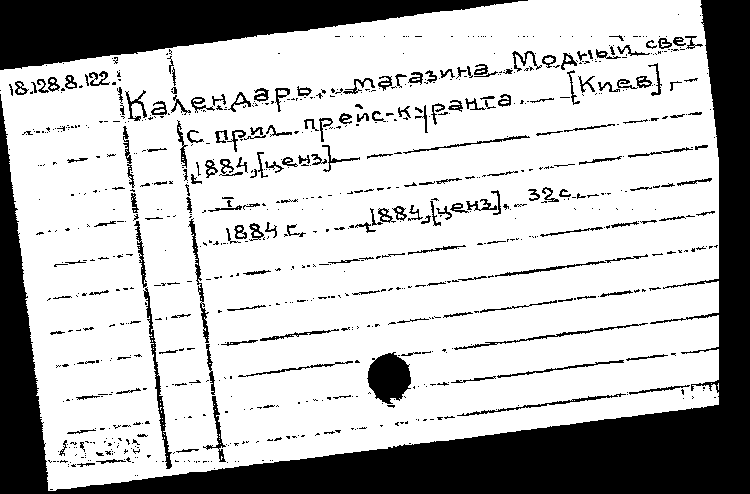 18.128.8.122.
Календарь магазина Модный свет
с прил. прейс-куранта. [Киев], –
[1884, [ценз.]
I
1884 г. [1884, [ценз.]. 32 с.